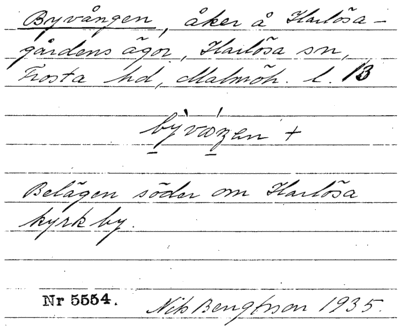 Byvången, åker å Harlösa-
gårdens ägor, Harlösa sn,
Frosta hd, Malmöh. l. 13
Belägen söder om Harlösa
kyrkby.
Nr 5554. Nils Bengtsson 1935.